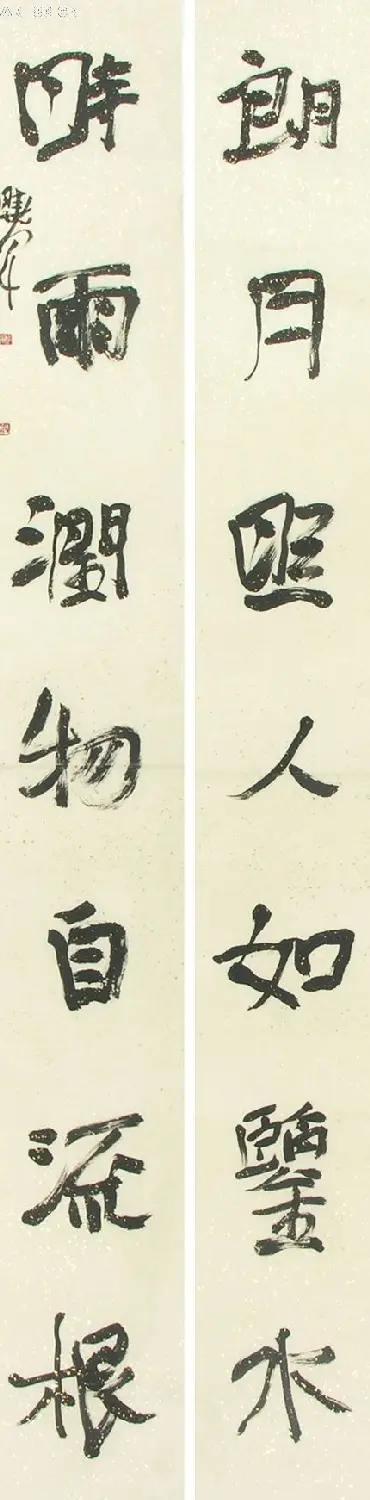 朗月照人如鑒水
時雨潤物自流根